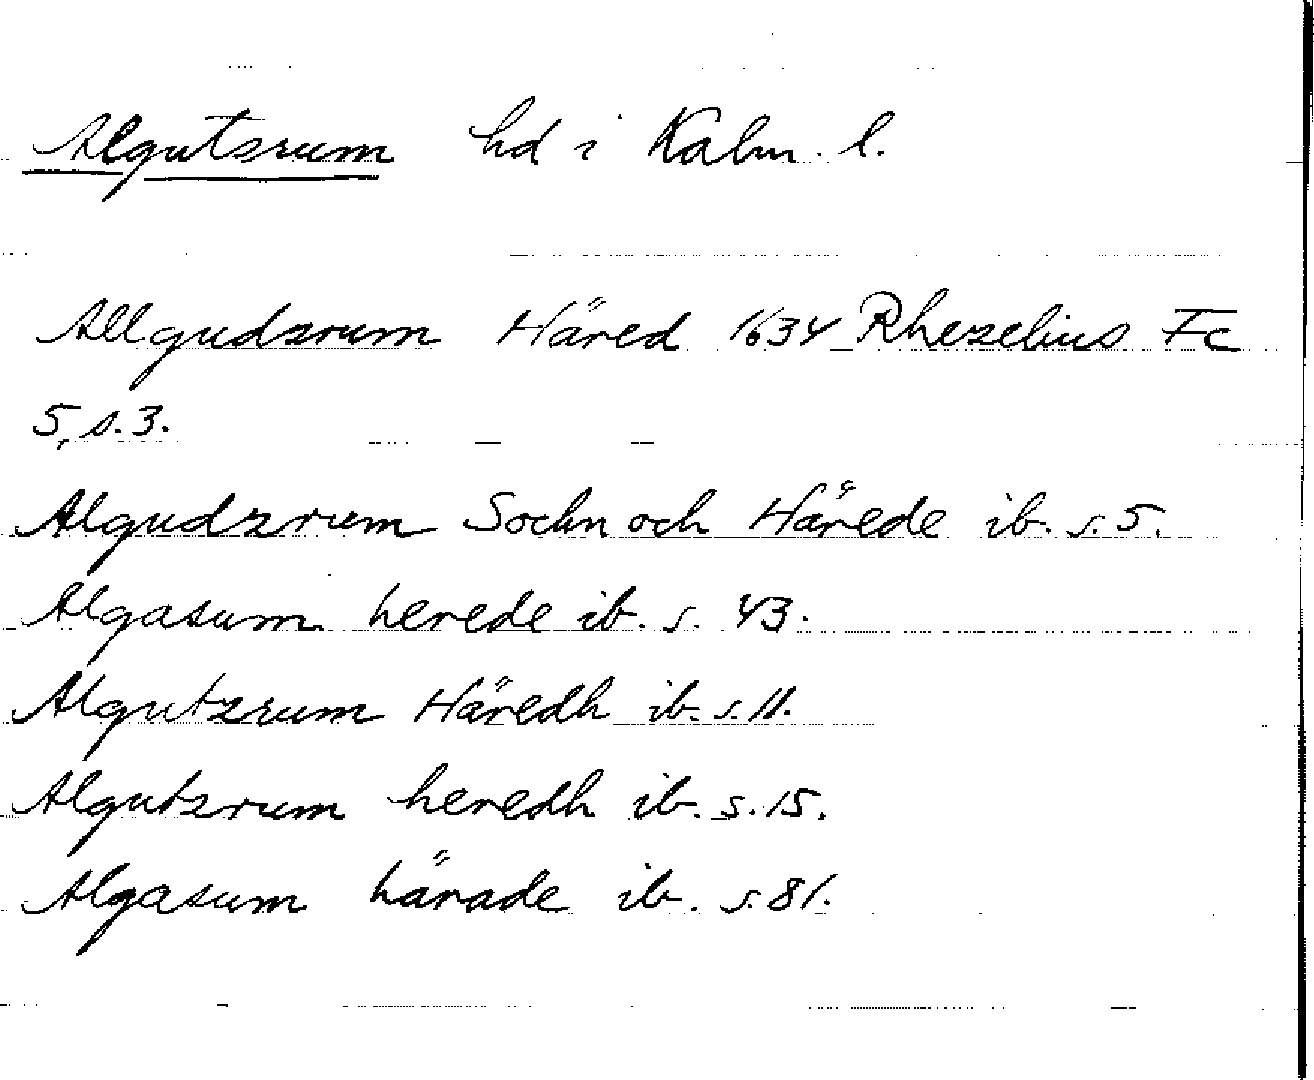 Algutsrum hd i Kalm. l.
Allgudzrum Häred 1634 Rhezelius Fc
5, s. 3.
Algudzrum Sochn och Härede ib. s. 5.
Algasum herede ib. s. 43.
Algutzrum Häredh ib. s. 11.
Algutzrum heredh ib. s. 15.
Algasum härade ib. s. 81.